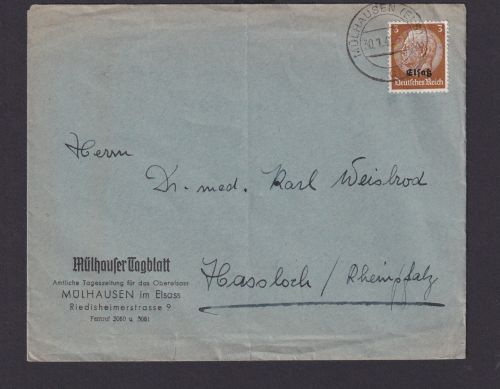 MÜLHAUSEN (ELS
3 3
Elsaß
Deutsches Reich
Herrn
Dr. med. Karl Weisbrod
Hassloch / Rheinpfalz
Mülhauser Tagblatt
Amtliche Tageszeitung für das Oberelsass
MÜLHAUSEN im Elsass
Riedisheimerstrasse 9
Fernruf 5060 u. 5061